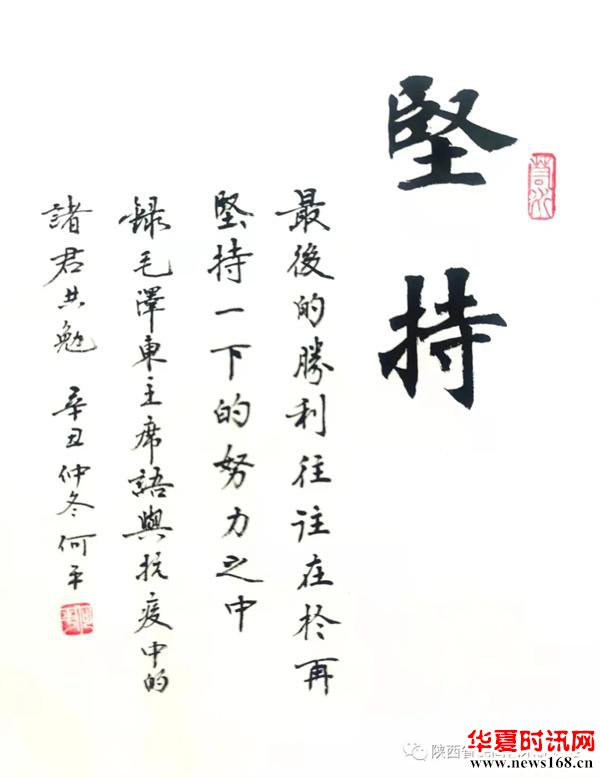 堅持
最後的勝利往往在於再
堅持一下的努力之中
錄毛澤東主席語與抗疫中的
諸君共勉 辛丑仲冬何平
陕西省
华夏时讯网
www.news168.cn